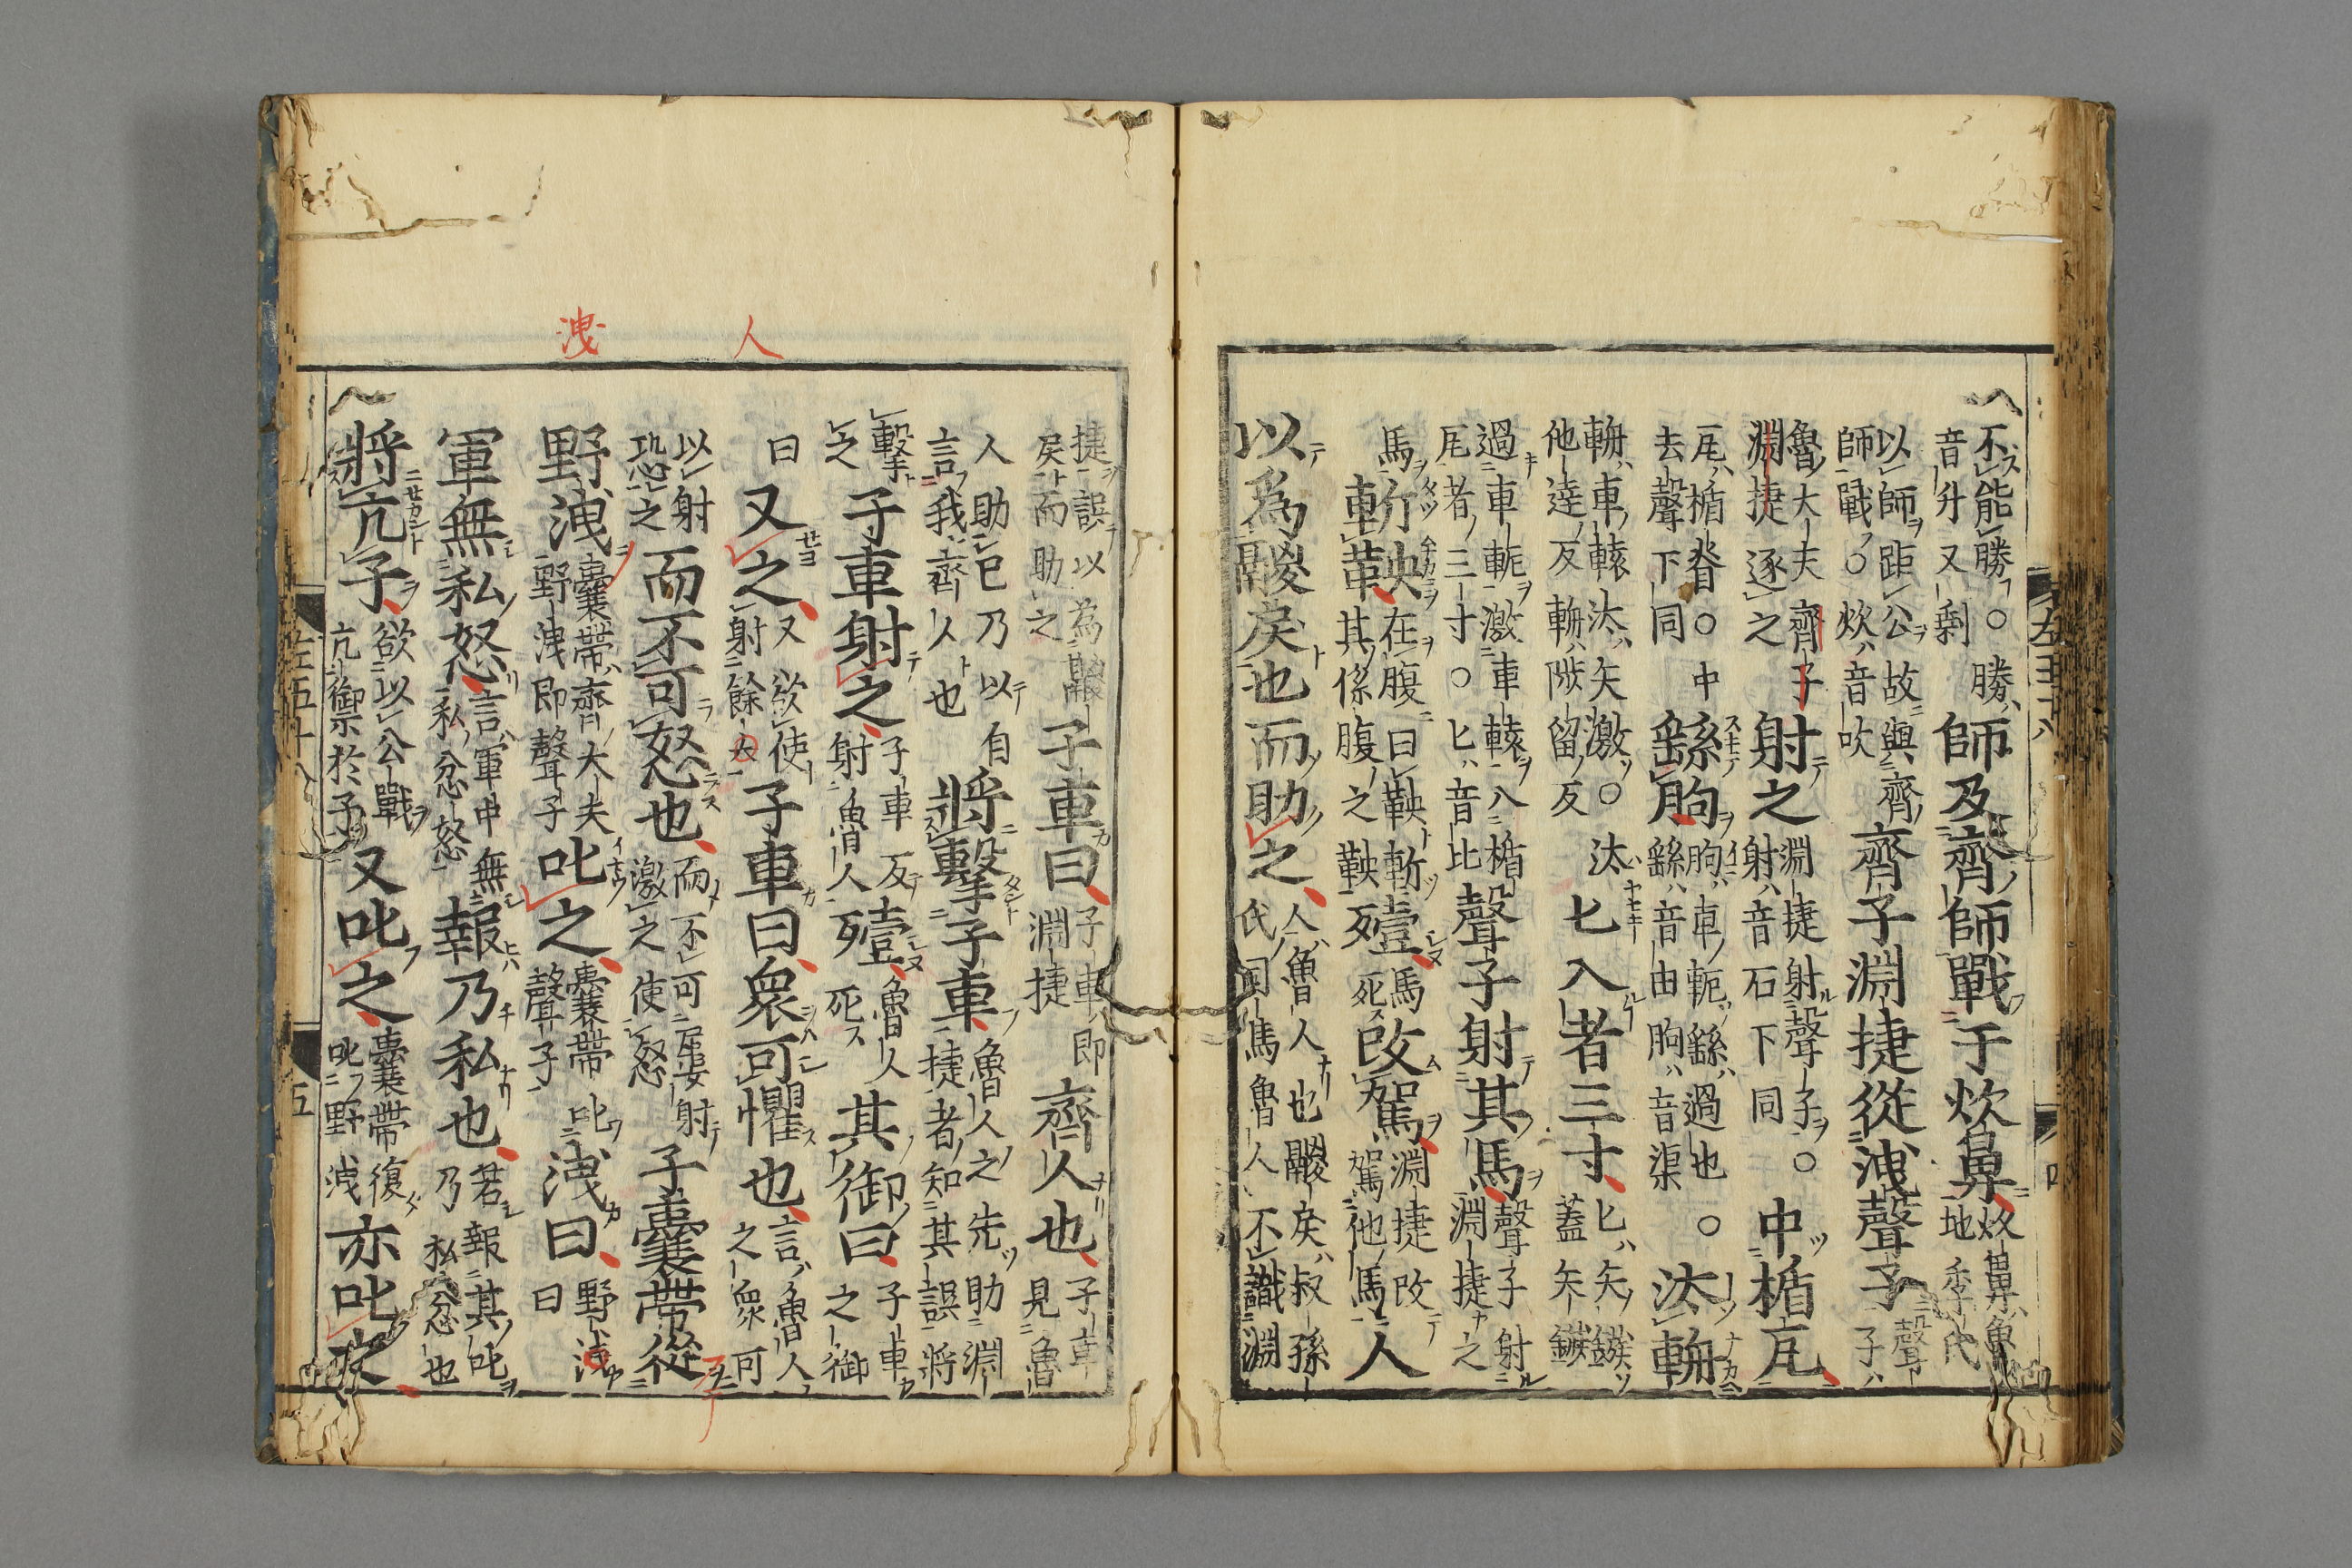 不能勝○勝音升又剩師及齊師戰于炊鼻炊鼻魯地季氏
以師距公故與齊師戰○炊音吹齊子淵捷從洩聲子聲子
魯大夫齊子淵捷逐之射之淵捷射聲子○射音石下同中楯瓦
瓦楯脊○中去聲下同繇朐朐車軛繇過也○繇音由朐音渠汰輈
輈車轅汰矢激○汰他達反輈陟留反匕入者三寸匕矢鏃蓋矢鏃
過車軛激車轅入楯瓦者三寸○匕音比聲子射其馬聲子射淵捷之
馬斬鞅在腹曰鞅斬其係腹之鞅殪馬死改駕淵捷改駕他馬人
以爲鬷戾也而助之人魯人也鬷戾叔孫氏司馬魯人不識淵
人
洩
捷誤以為鬷戾而助之子車曰子車即淵捷齊人也子車見魯
人助己乃以自言我齊人也將擊子車魯人之先助淵捷者知其誤將
擊之子車射之子車反射魯人殪魯人死其御曰子車之御
曰又之又欲使射餘人子車曰衆可懼也言魯人之衆可
以射恐之而不可怒也而不可屢射激之使怒子囊帶從
野洩囊帶齊大夫野洩即聲子叱之囊帶叱聲子洩曰野洩曰
軍無私怒言軍中無私忿怒報乃私也若報其叱乃私忿也
將亢子欲以公戰亢禦於子又叱之囊帶復叱野洩亦叱之
左五十八
五